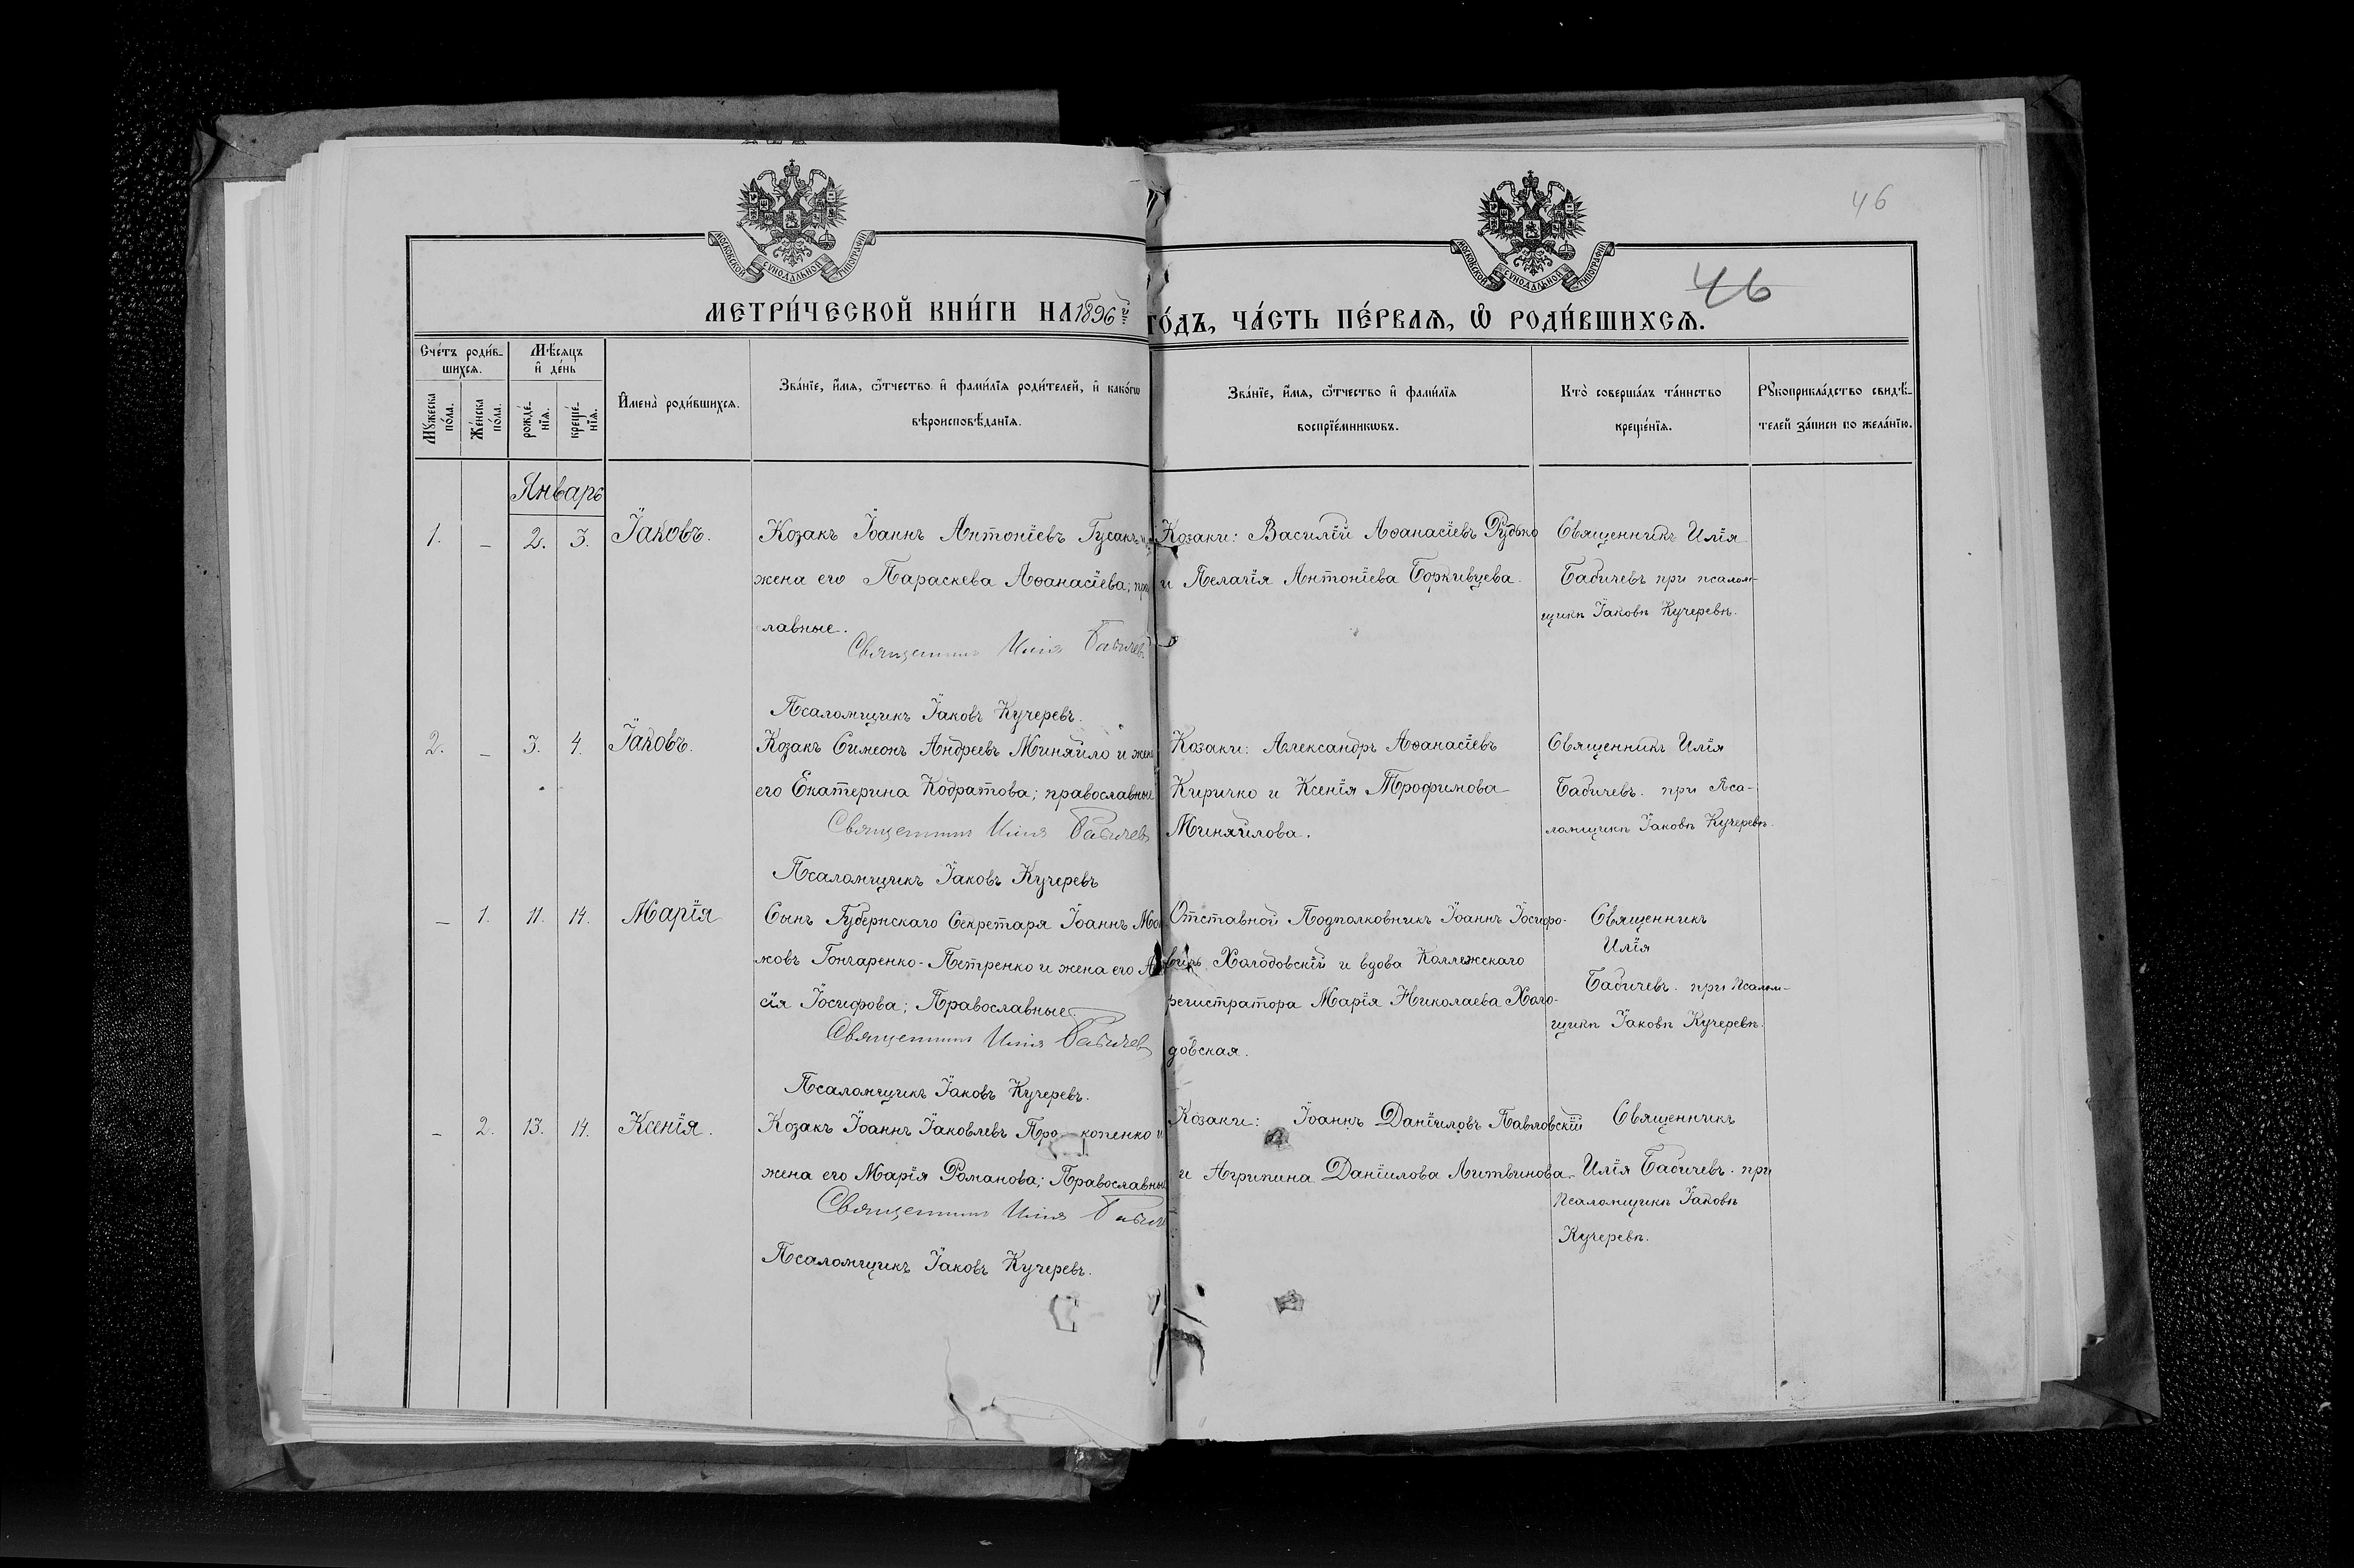 46
МОСКОВСКОЙ СУНОДАЛЬНОЙ ТИПОГРАФІИ
МОСКОВСКОЙ СУНОДАЛЬНОЙ ТИПОГРАФІИ
46
МЕТРИ́ЧЕСКОЙ КНИ́ГИ НА 1896й ГО́ДЪ, ЧА́СТЬ ПЕ́РВАѦ, Ѡ҆ РОДИ́ВШИХСѦ.
Сче́тъ роди́в-
шихсѧ.
Мꙋ́жеска по́ла.
Же́нска по́ла.
Мѣ́сѧцъ
и҆ де́нь
рожде́-
нїѧ.
креще́-
нїѧ.
И҆мена̀ роди́вшихсѧ.
Зва́нїе, и҆́мѧ, ѻ҆́тчество и҆ фами́лїѧ роди́телей, и҆ како́гѡ
вѣроисповѣ́данїѧ.
Зва́нїе, и҆́мѧ, ѻ҆́тчество и҆ фами́лїѧ
воспрїе́мникѡвъ.
Кто̀ соверша́лъ та́инство
креще́нїѧ.
Рꙋкоприкла́дство свидѣ́-
телей за́писи по жела́нїю.
Январь
1. – 2. 3. Іаковъ.
Козакъ Іоаннъ Антоніевъ Гусакъ и
жена его Параскева Аѳанасіева; пра
лавные.
Священникъ Илія Бабичевъ
Псаломщикъ Іаковъ Кучеревъ.
Козаки: Василій Аѳанасіевъ Рудько
и Пелагія Антоніева Боркивцева.
Священникъ Илія
Бабичевъ при псалом-
щикѣ Іаковѣ Кучеревѣ.
2. – 3. 4. Іаковъ.
Козакъ Симеонъ Андреевъ Миняйло и жена
его Екатерина Кодратова; православные
Священникъ Илія Бабичевъ
Псаломщикъ Іаковъ Кучеревъ
Козаки: Александръ Аѳанасіевъ
Киричко и Ксенія Трофимова
Миняйлова.
Священникъ Илія
Бабичевъ. при Пса-
ломщикѣ Іаковѣ Кучеревѣ.
– 1. 11. 14. Марія
Сынъ Губернскаго Секретаря Іоаннъ
ковъ Гончаренко-Петренко и жена его
сія Іосифова; Православные
Священникъ Илія Бабичевъ
Псаломщикъ Іаковъ Кучеревъ.
Отставной Подполковникъ Іоаннъ Іосифо-
вичъ Холодовскій и вдова Коллежскаго
регистратора Марія Николаева Холо-
довская.
Священникъ
Илія
Бабичевъ. при Псалом-
щикѣ Іаковѣ Кучеревѣ.
– 2. 13. 14. Ксенія.
Козакъ Іоаннъ Іаковлевъ Про-копенко и
жена его Марія Романова; Православные
Священникъ Илія Бабич
Псаломщикъ Іаковъ Кучеревъ.
Козаки: Іоаннъ Даніиловъ Павловскій
и Агрипина Даніилова Литвинова
Священникъ
Илія Бабичевъ. при
Псаломщикѣ Іаковѣ
Кучеревѣ.